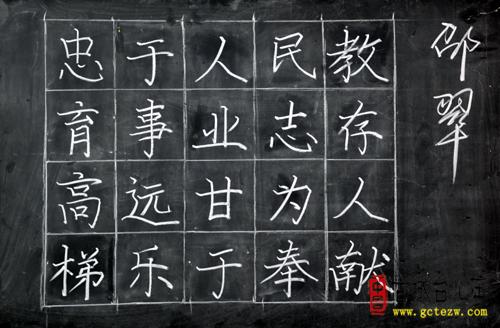 忠于人民教
育事业志存
高远甘为人
梯乐于奉献
邵翠
www.gctezw.com